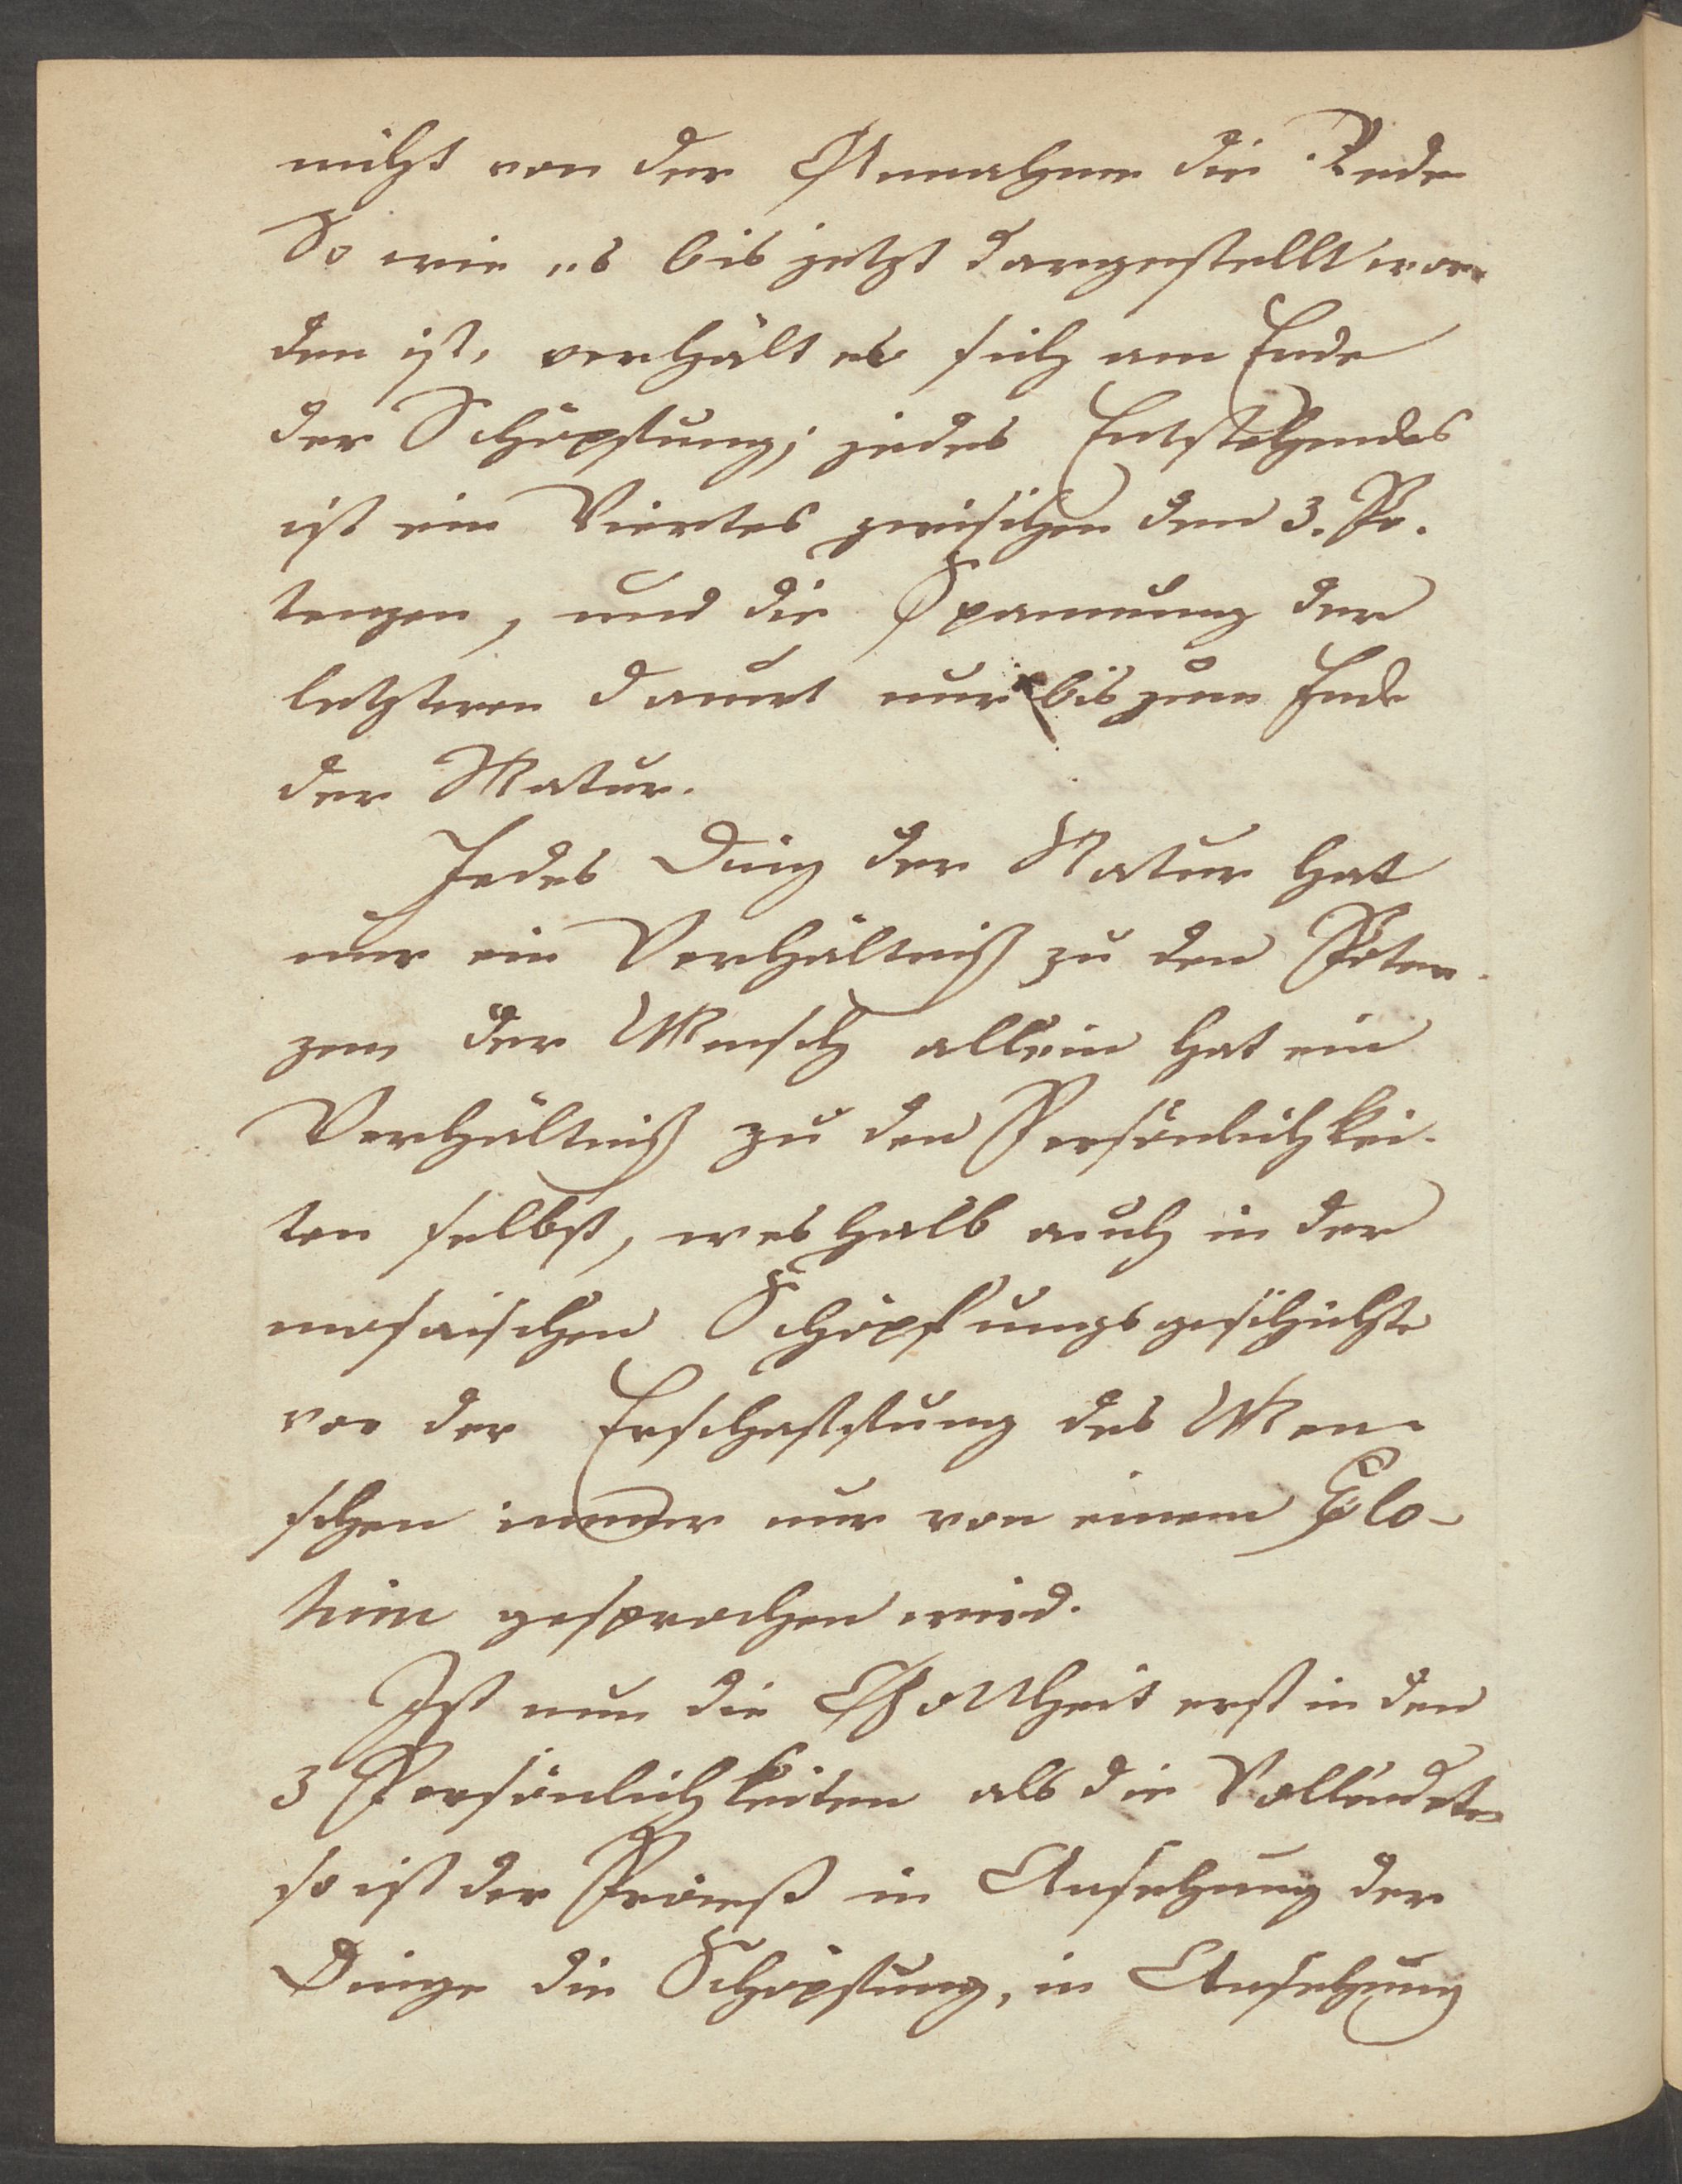 nicht von der Annahme die Rede
So wie es bis jetzt dargestellt wor-
den ist, verhält es sich am Ende
der Schöpfung; jedes Entstehendes
ist ein Viertes zwischen den 3. Po-
tenzen, und die Spannung der
letzteren dauert nur bis zum Ende
der Natur.
Jedes Ding der Natur hat
nur ein Verhältniß zu den Poten-
zen der Mensch allein hat ein
Verhältniß zu den Persönlichkei-
ten selbst, weshalb auch in der
mosaischen Schöpfungsgeschichte
vor der Erschaffung des Men-
schen immer nur von einem Elo-
him gesprochen wird.
Ist nun die Gottheit erst in den
3 Persönlichkeiten als die Vollendete
so ist der Proceß in Ansehung der
Dinge die Schöpfung, in Ansehung